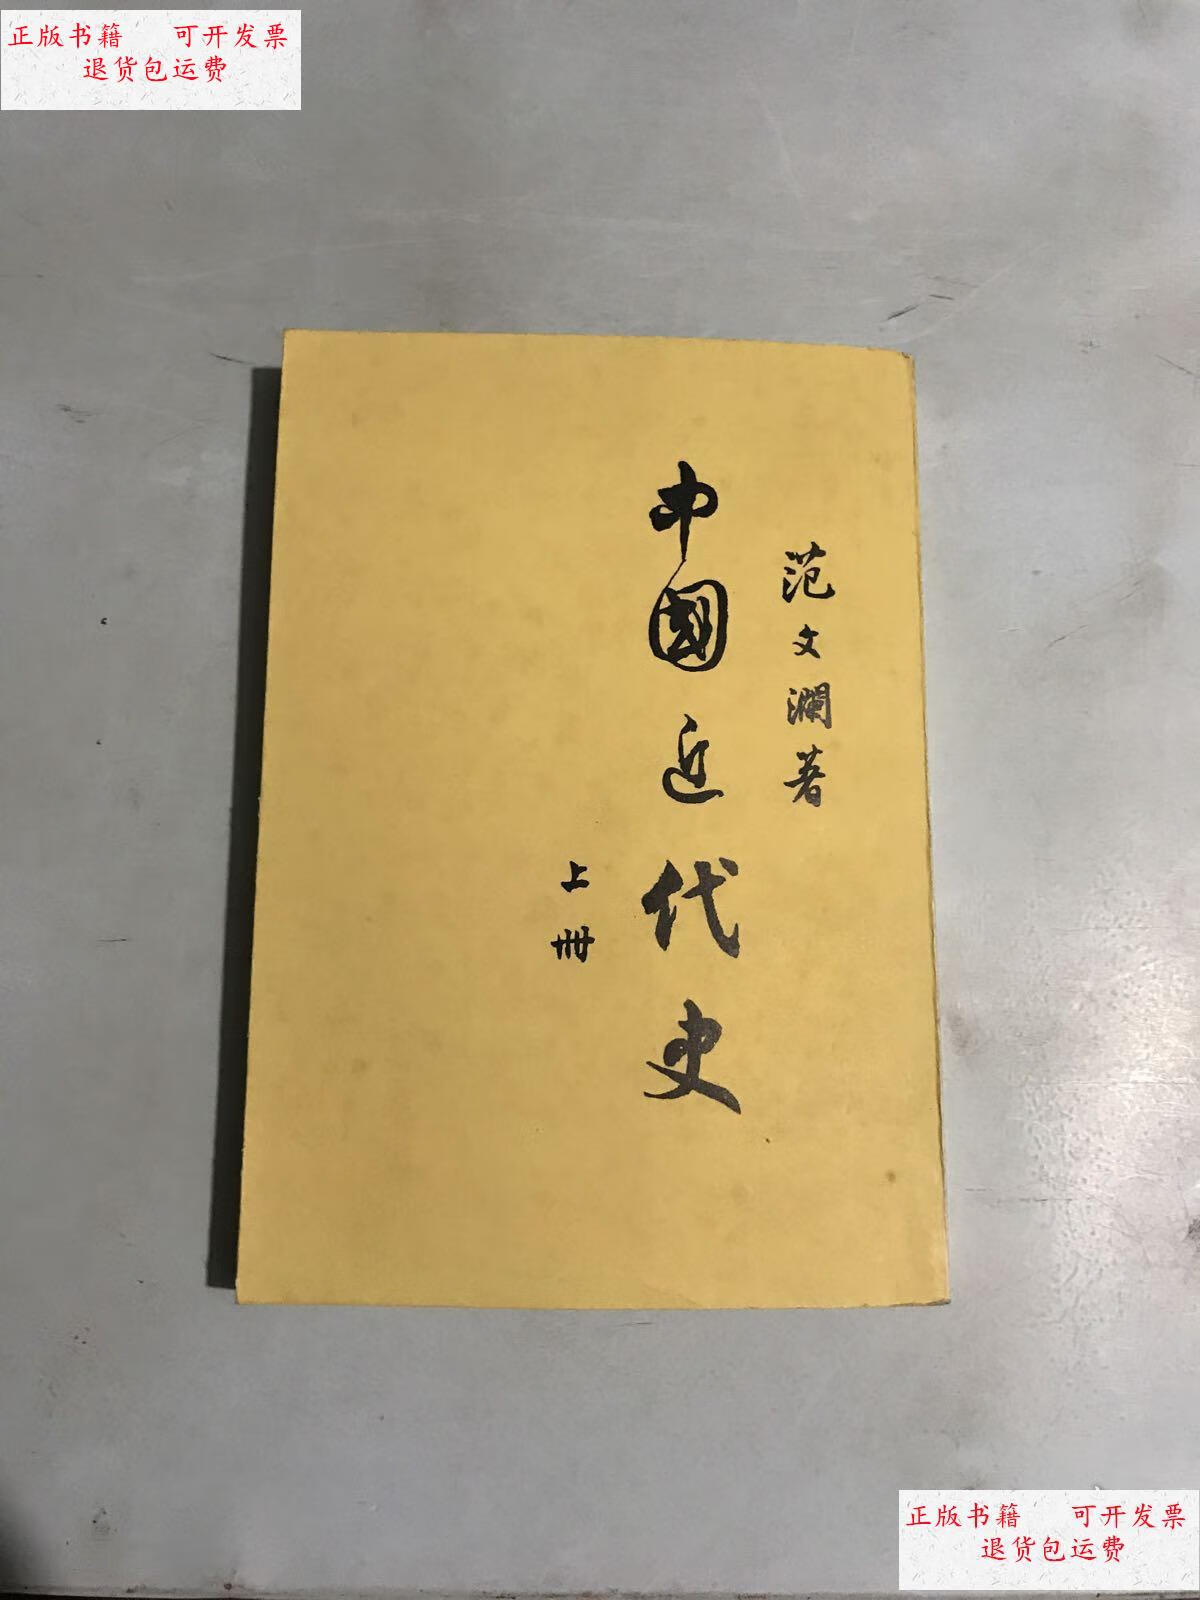 正版书籍 可开发票
退货包运费
范文瀾著
中國近代史
上冊
正版书籍 可开发票
退货包运费